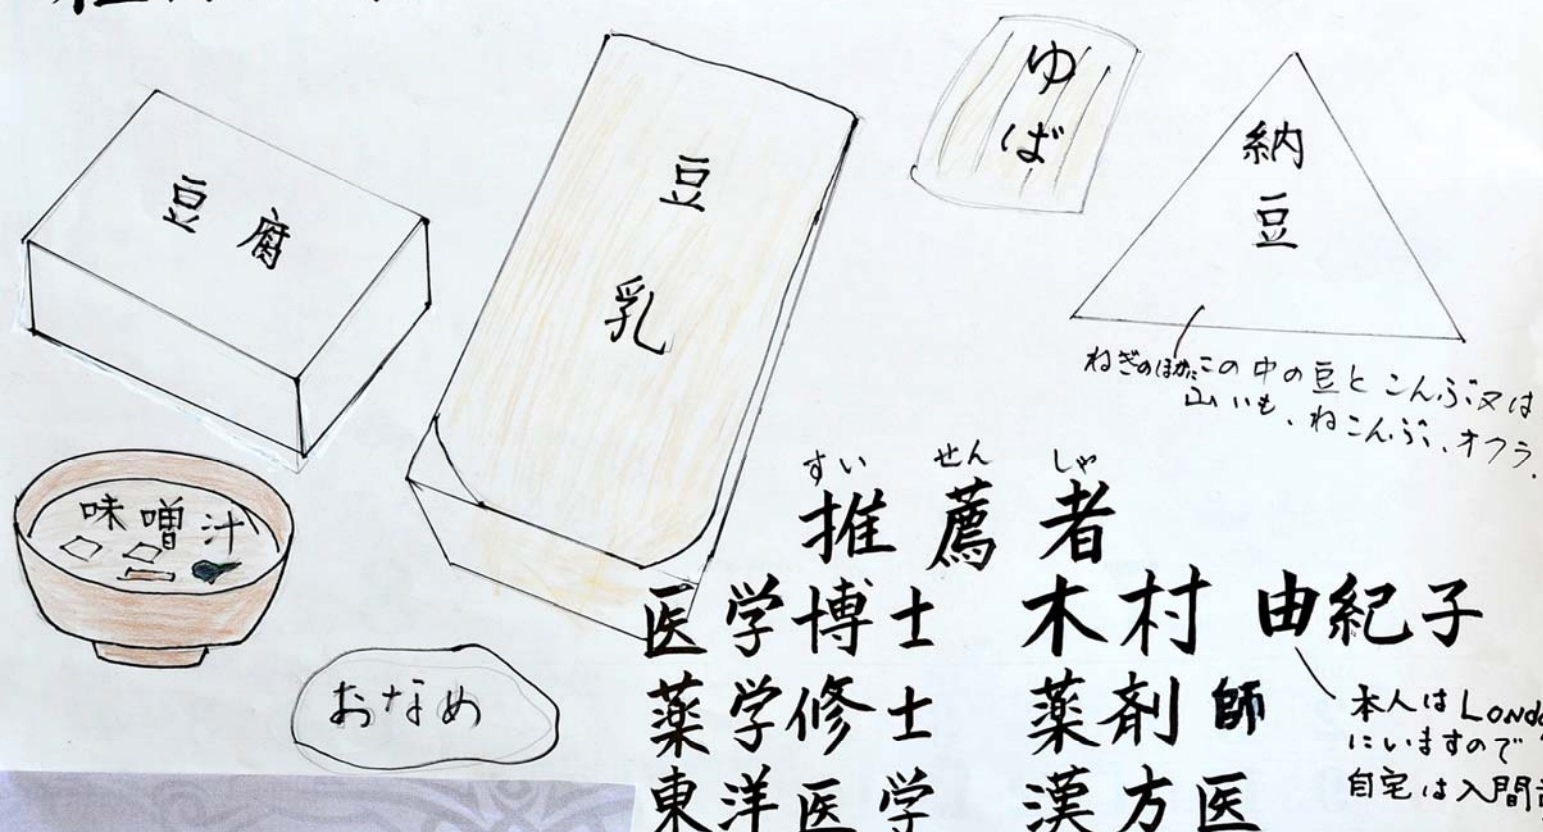 豆腐
豆乳
ゆば
納豆
ねぎのほかにこの中の豆とこんぶ又は
山いも、ねこんぶ、オクラ.
味噌汁
おなめ
すい せん しゃ
推薦者
医学博士 木村 由紀子
薬学修士 薬剤師
東洋医学 漢方医
本人は Londo
にいますので
自宅は入間